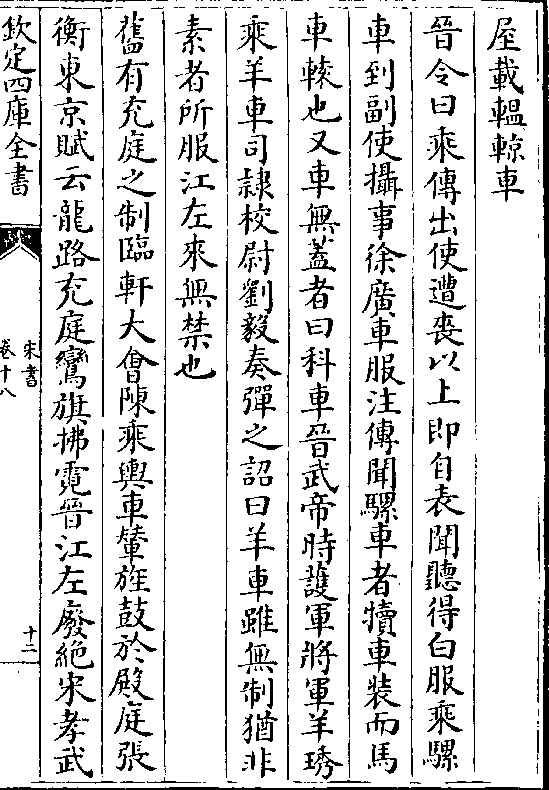 屋載轀輬車
晉令曰乘傳出使遭喪以上即自表聞聽得白服乘騾
車到副使攝事徐廣車服注傳聞騾車者犢車裝而馬
車轅也又車無蓋者曰科車晉武帝時護軍將軍羊琇
乘羊車司隸校尉劉毅奏彈之詔曰羊車雖無制猶非
素者所服江左來無禁也
舊有充庭之制臨軒大會陳乘輿車輦旌鼓於殿庭張
衡東京賦云龍路充庭鸞旗拂霓晉江左廢絶宋孝武
欽定四庫全書
宋書
卷十八
十二